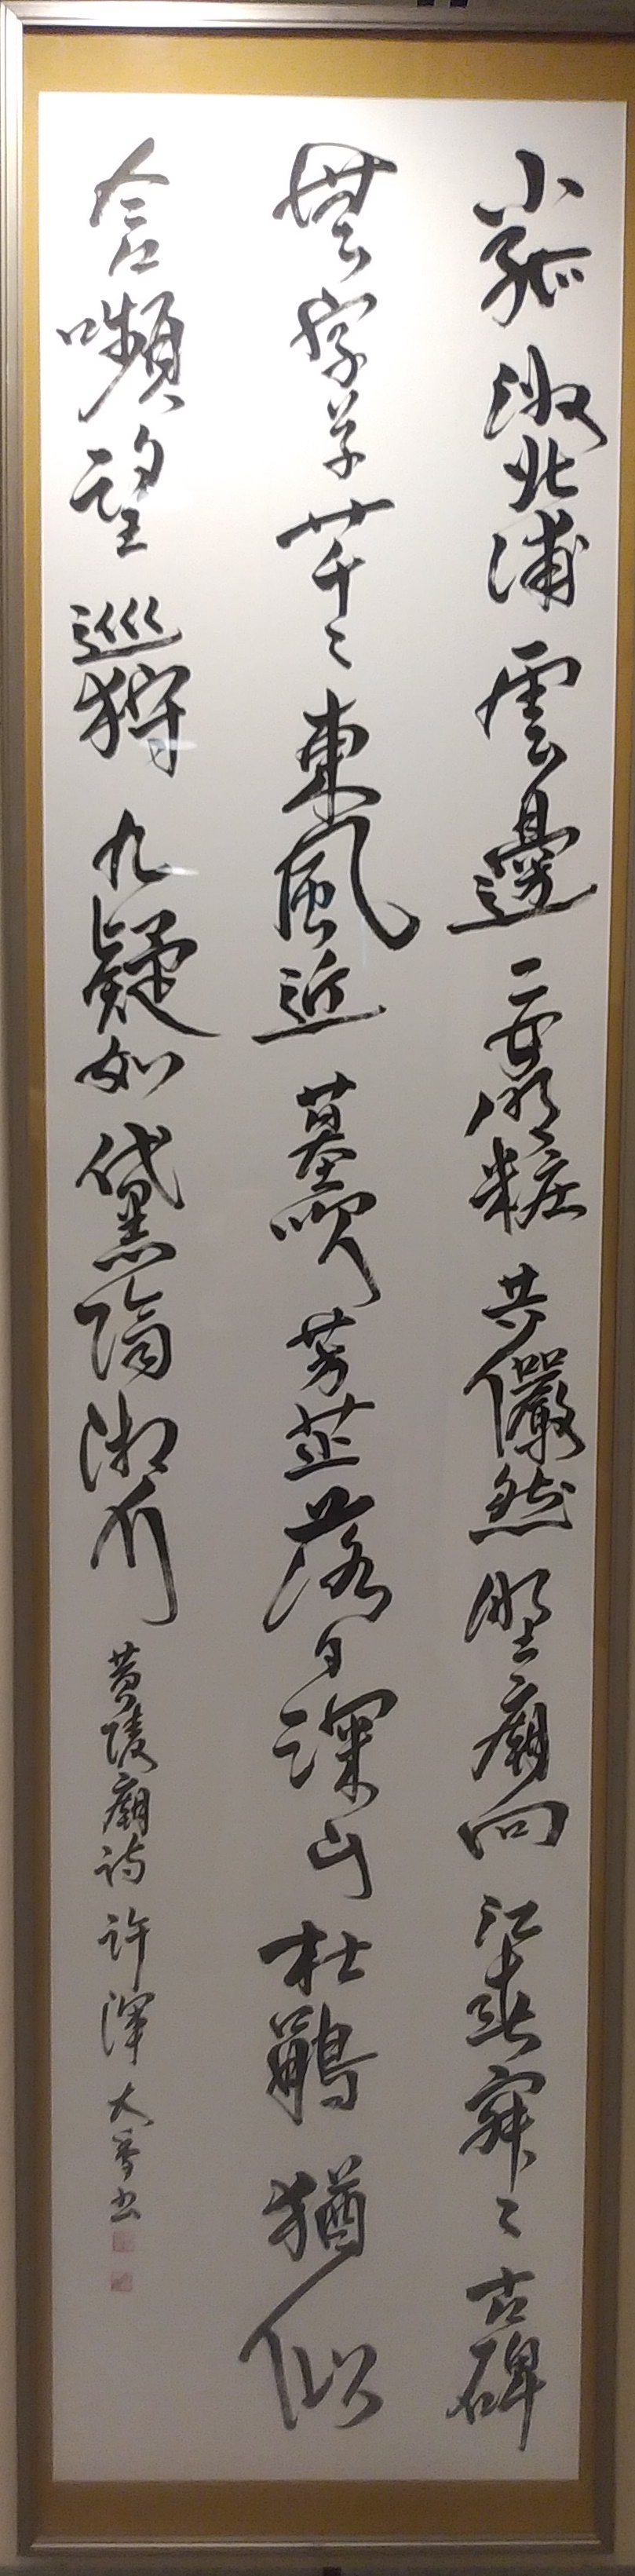 小孤洲北浦雲邊二女明粧共儼然野廟向江春寂々古碑
無字草芊々東風近暮吹芳芷落日深山杜鵑猶似
含嚬望巡狩九疑如黛隔湘川 黄陵廟詩 許渾 書